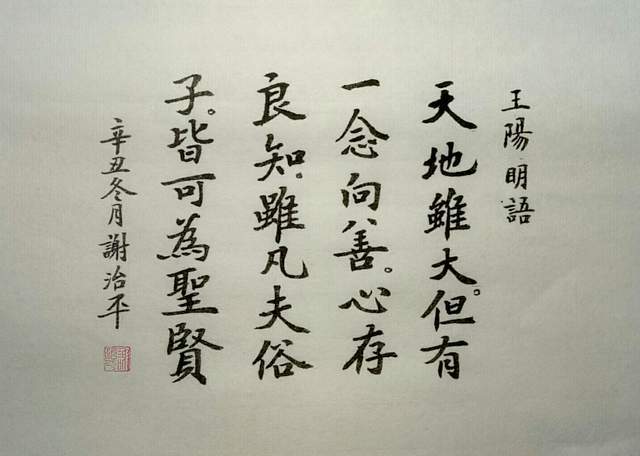 王陽明語
天地雖大。但有
一念向善。心存
良知。雖凡夫俗
子。皆可為聖賢
辛丑冬月謝治平